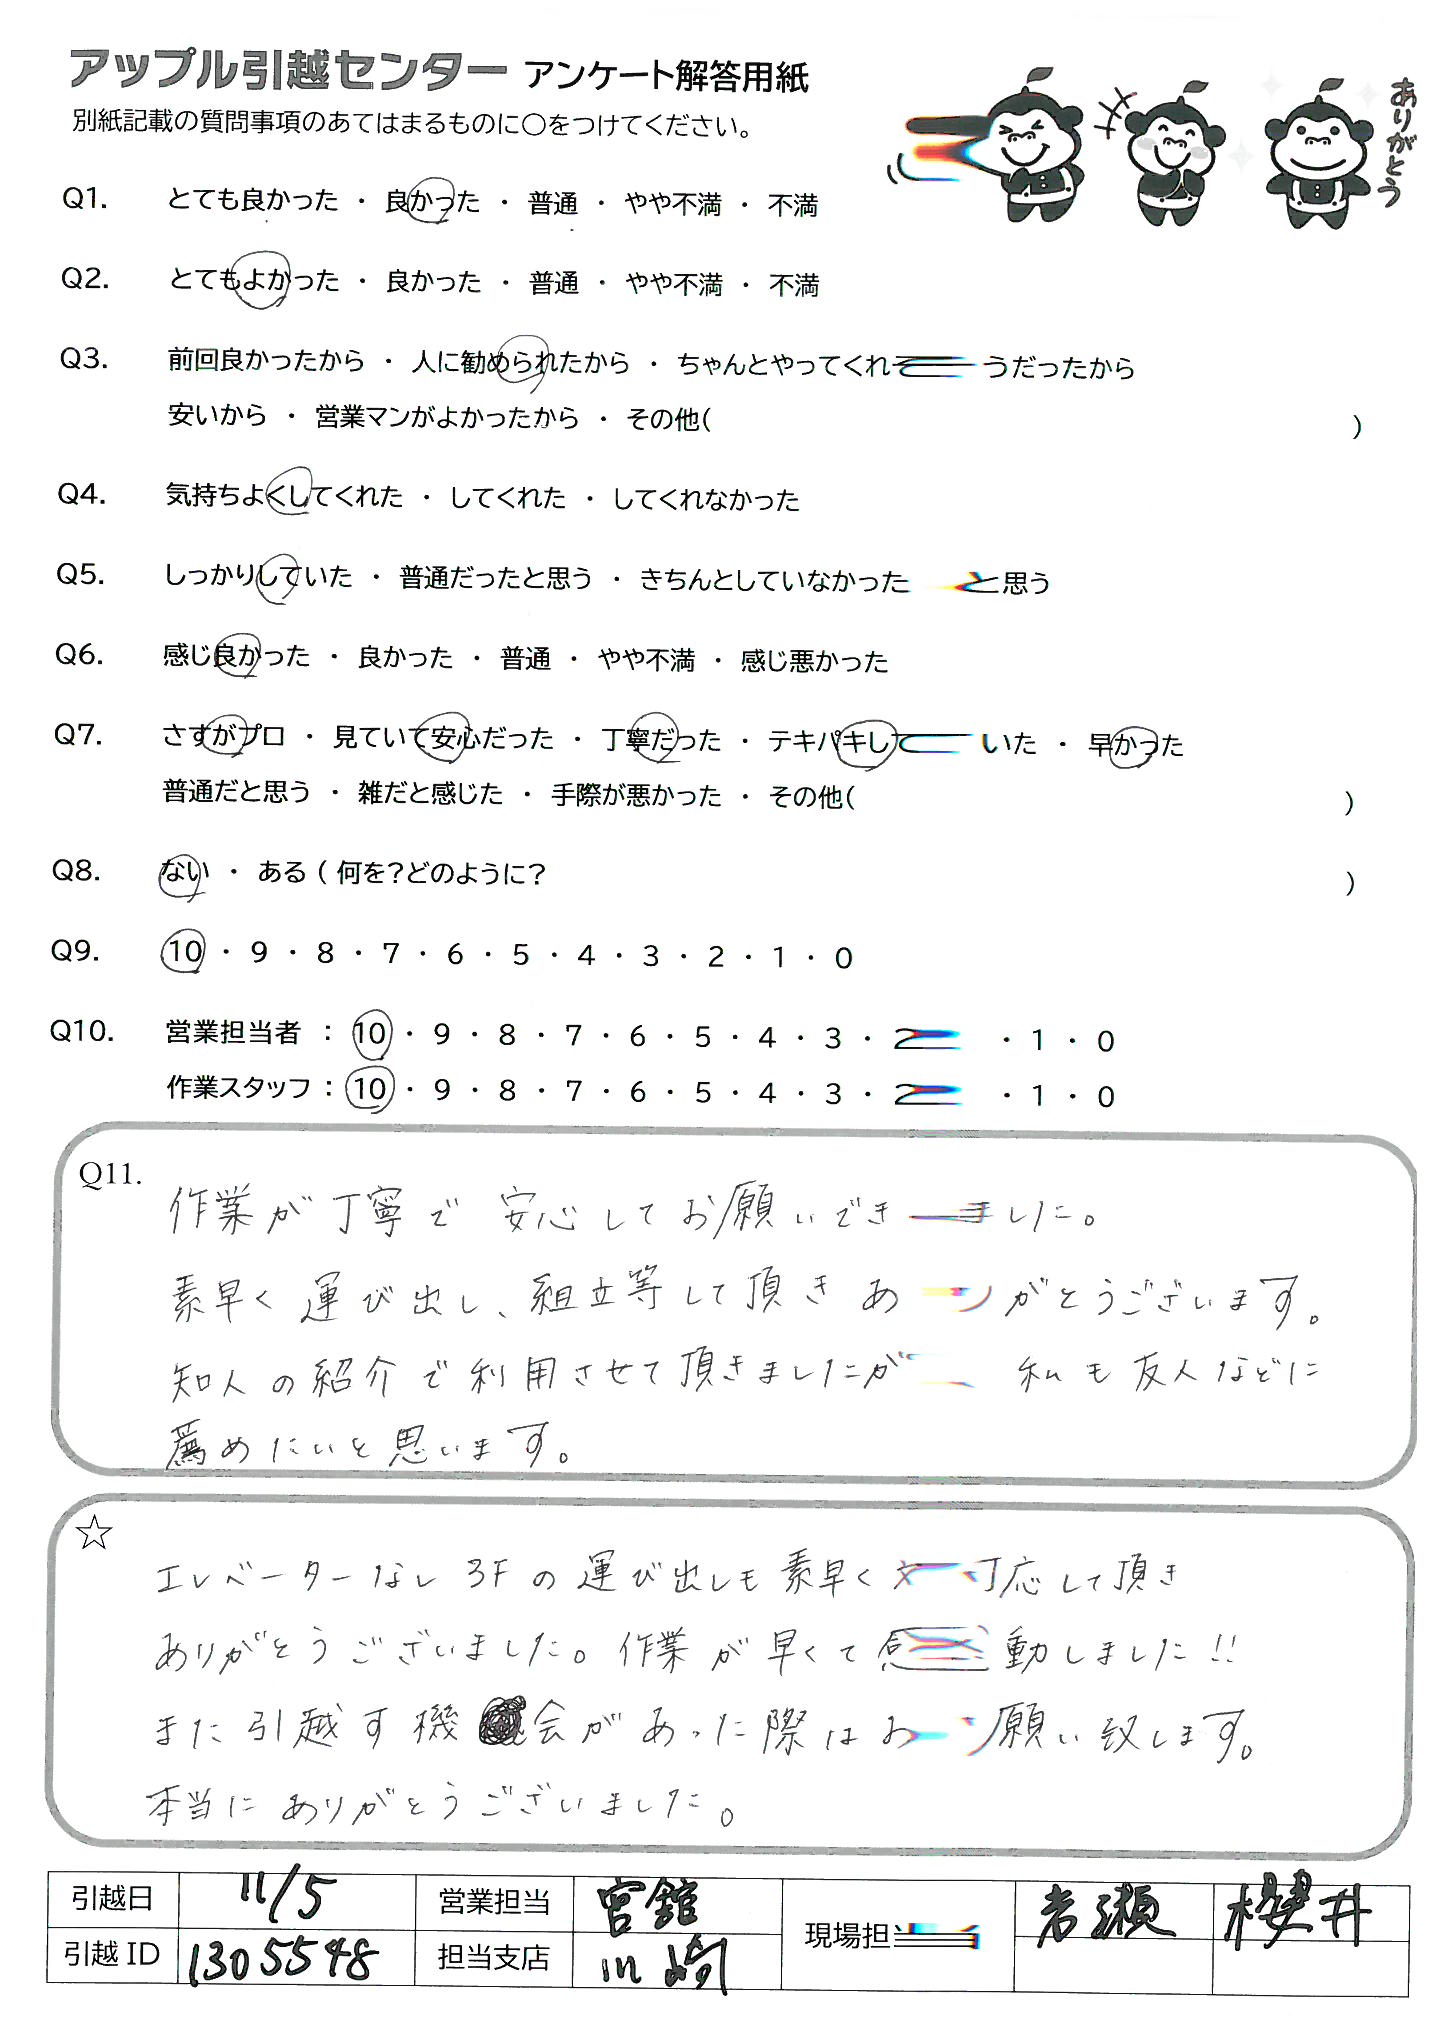 アップル引越センター アンケート解答用紙
別紙記載の質問事項のあてはまるものに○をつけてください。
ありがとう
Q1. とても良かった ・ 良かった ・ 普通 ・ やや不満 ・ 不満
Q2. とてもよかった ・ 良かった ・ 普通 ・ やや不満 ・ 不満
Q3. 前回良かったから ・ 人に勧められたから ・ ちゃんとやってくれそうだったから
安いから ・ 営業マンがよかったから ・ その他( )
Q4. 気持ちよくしてくれた ・ してくれた ・ してくれなかった
Q5. しっかりしていた ・ 普通だったと思う ・ きちんとしていなかったと思う
Q6. 感じ良かった ・ 良かった ・ 普通 ・ やや不満 ・ 感じ悪かった
Q7. さすがプロ ・ 見ていて安心だった ・ 丁寧だった ・ テキパキしていた ・ 早かった
普通だと思う ・ 雑だと感じた ・ 手際が悪かった ・ その他( )
Q8. ない ・ ある ( 何を?どのように? )
Q9. 10 ・ 9 ・ 8 ・ 7 ・ 6 ・ 5 ・ 4 ・ 3 ・ 2 ・ 1 ・ 0
Q10. 営業担当者 : 10 ・ 9 ・ 8 ・ 7 ・ 6 ・ 5 ・ 4 ・ 3 ・ 2 ・ 1 ・ 0
作業スタッフ : 10 ・ 9 ・ 8 ・ 7 ・ 6 ・ 5 ・ 4 ・ 3 ・ 2 ・ 1 ・ 0
Q11. 作業が丁寧で 安心してお願いできました。
素早く運び出し、組立等して頂きありがとうございます。
知人の紹介で利用させて頂きましたが 私も友人などに
薦めたいと思います。
☆
エレベーターなし3Fの運び出しも素早く対応して頂き
ありがとうございました。作業が早くて感動しました!!
また引越す機会があった際はお願い致します。
本当にありがとうございました。
引越日 11/5 営業担当 宮舘 現場担当 岩瀬 櫻井
引越ID 1305548 担当支店 川崎